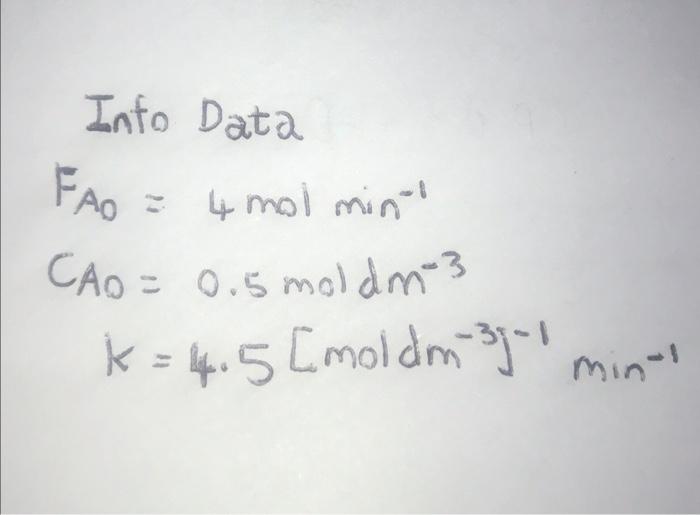 Info Data
F_A0 = 4 mol min⁻¹
C_A0 = 0.5 mol dm⁻³
k = 4.5 [mol dm⁻³]⁻¹ min⁻¹